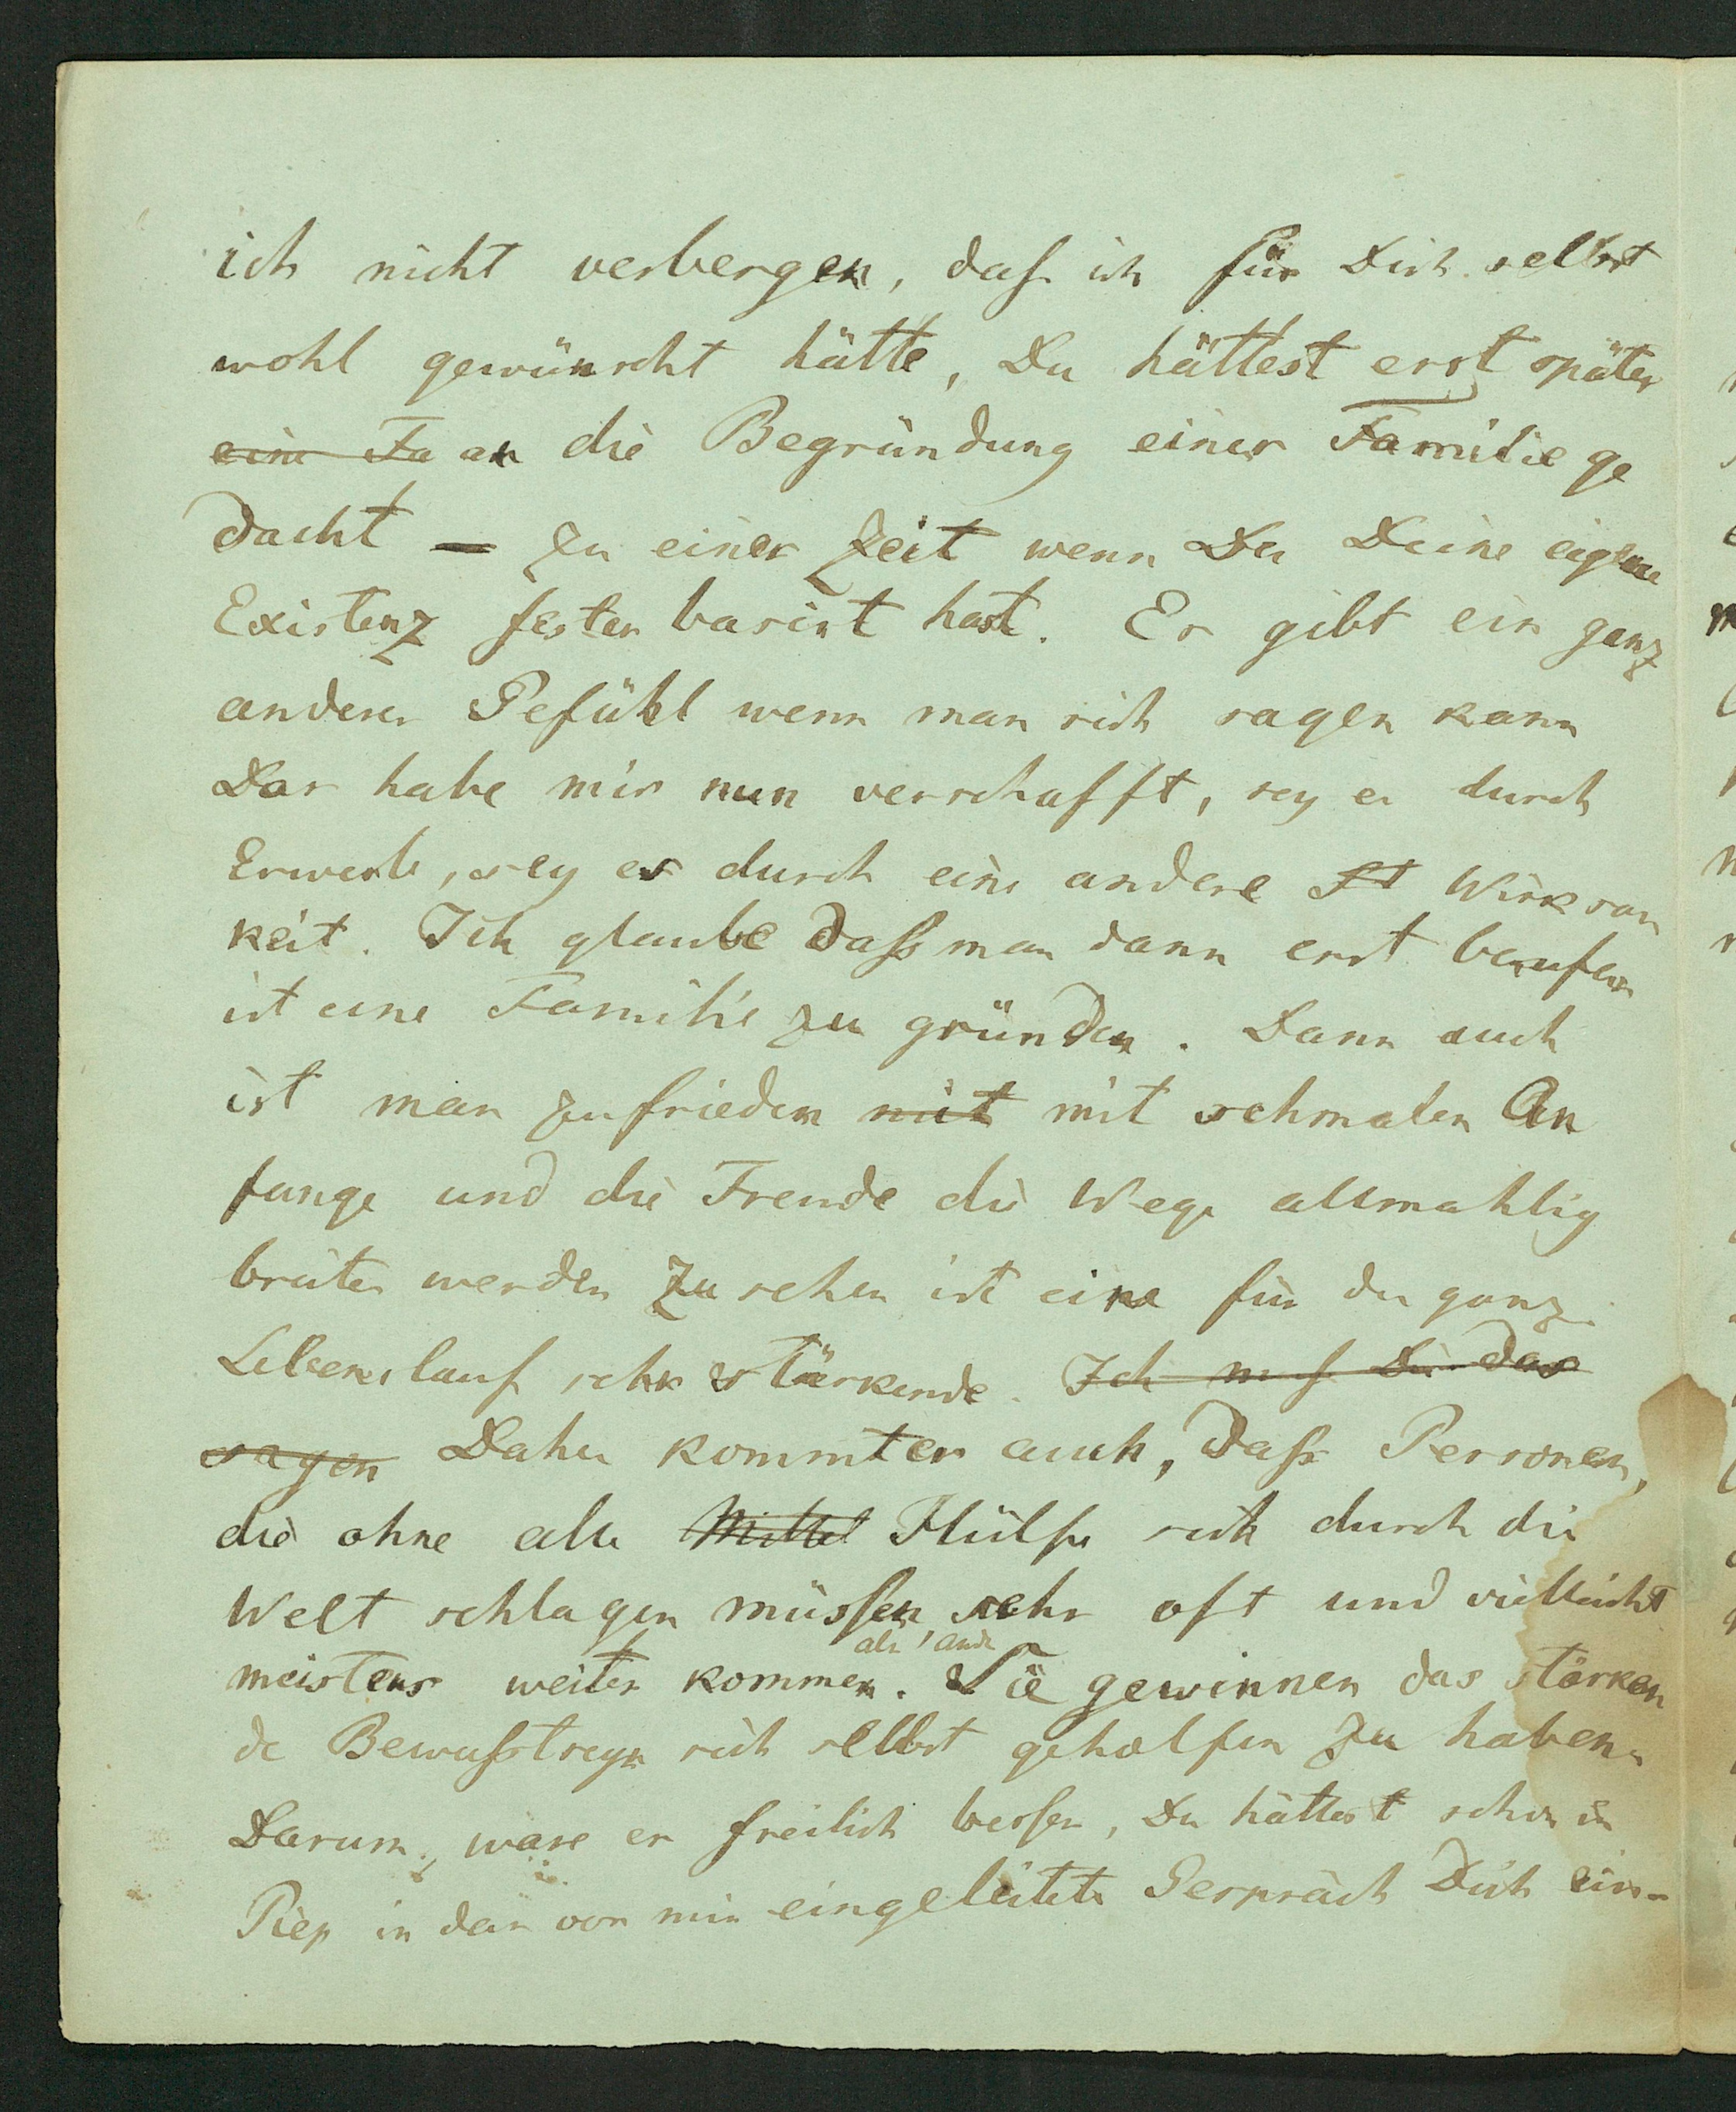 ich nicht verbergen, daß ich für Dich selbst
wohl gewünscht hätte, Du hättest erst später
eine Fa an die Begründung einer Familie ge
dacht — zu einer Zeit wenn Du Deine eigene
Existenz fester basirt hast. Es gibt ein ganz
anderes Gefühl wenn man sich sagen kann
Das habe mir nun verschafft, sey es durch
Erwerb, sey es durch eine andere St Wirksam
keit. Ich glaube daß man dann erst berufen
ist eine Familie zu gründen. Dann auch
ist man zufrieden mit mit schmalen An
fange und die Freude die Wege allmahlig
breiter werden zu sehen ist eine für den ganz
Lebenslauf sehr stärkende. Ich muß Dir das
sagen Daher kommt es auch, daß Personen,
die ohne alle Mittel Hülfe sich durch die
Welt schlagen müssen sehr oft und vielleicht
meistens weiter kommen. als andre Sie gewinnen das stärken
de Bewußtseyn sich selbst geholfen zu haben.
Darum, wäre es freilich besser, Du hättest schon in
in das von mir eingeleitete Gespräch Dich ein-